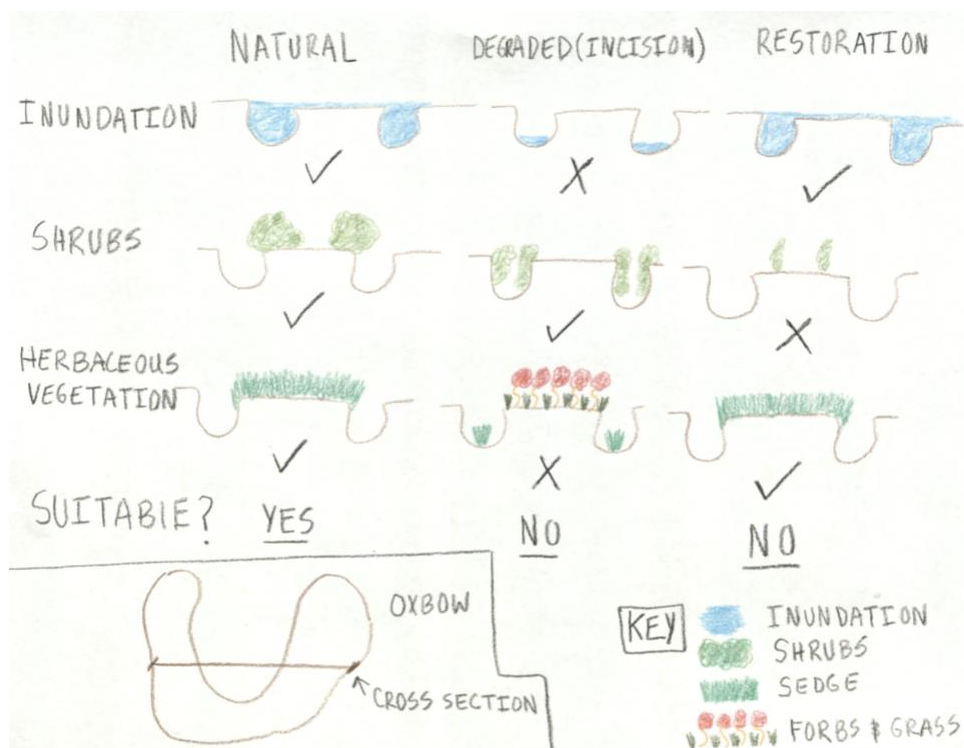 NATURAL DEGRADED (INCISION) RESTORATION
INUNDATION
✓ X ✓
SHRUBS
✓ ✓ X
HERBACEOUS
VEGETATION
✓ X ✓
SUITABLE? YES NO NO
OXBOW
CROSS SECTION
KEY
INUNDATION
SHRUBS
SEDGE
FORBS & GRASS